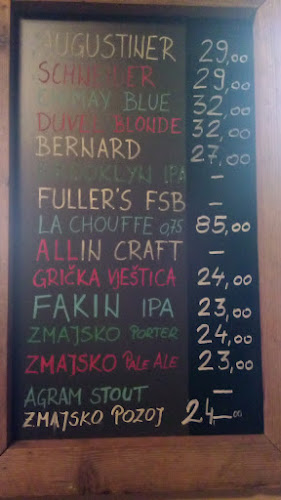 AUGUSTINER 29,00
SCHNEIDER 29,00
CHIMAY BLUE 32,00
DUVEL BLONDE 32,00
BERNARD 27,00
BROOKLYN IPA –
FULLER'S FSB –
LA CHOUFFE 0,75 85,00
ALL IN CRAFT –
GRIČKA VJEŠTICA 24,00
FAKIN IPA 23,00
ZMAJSKO PORTER 24,00
ZMAJSKO PALE ALE 23,00
AGRAM STOUT –
ZMAJSKO POZOJ 24,00